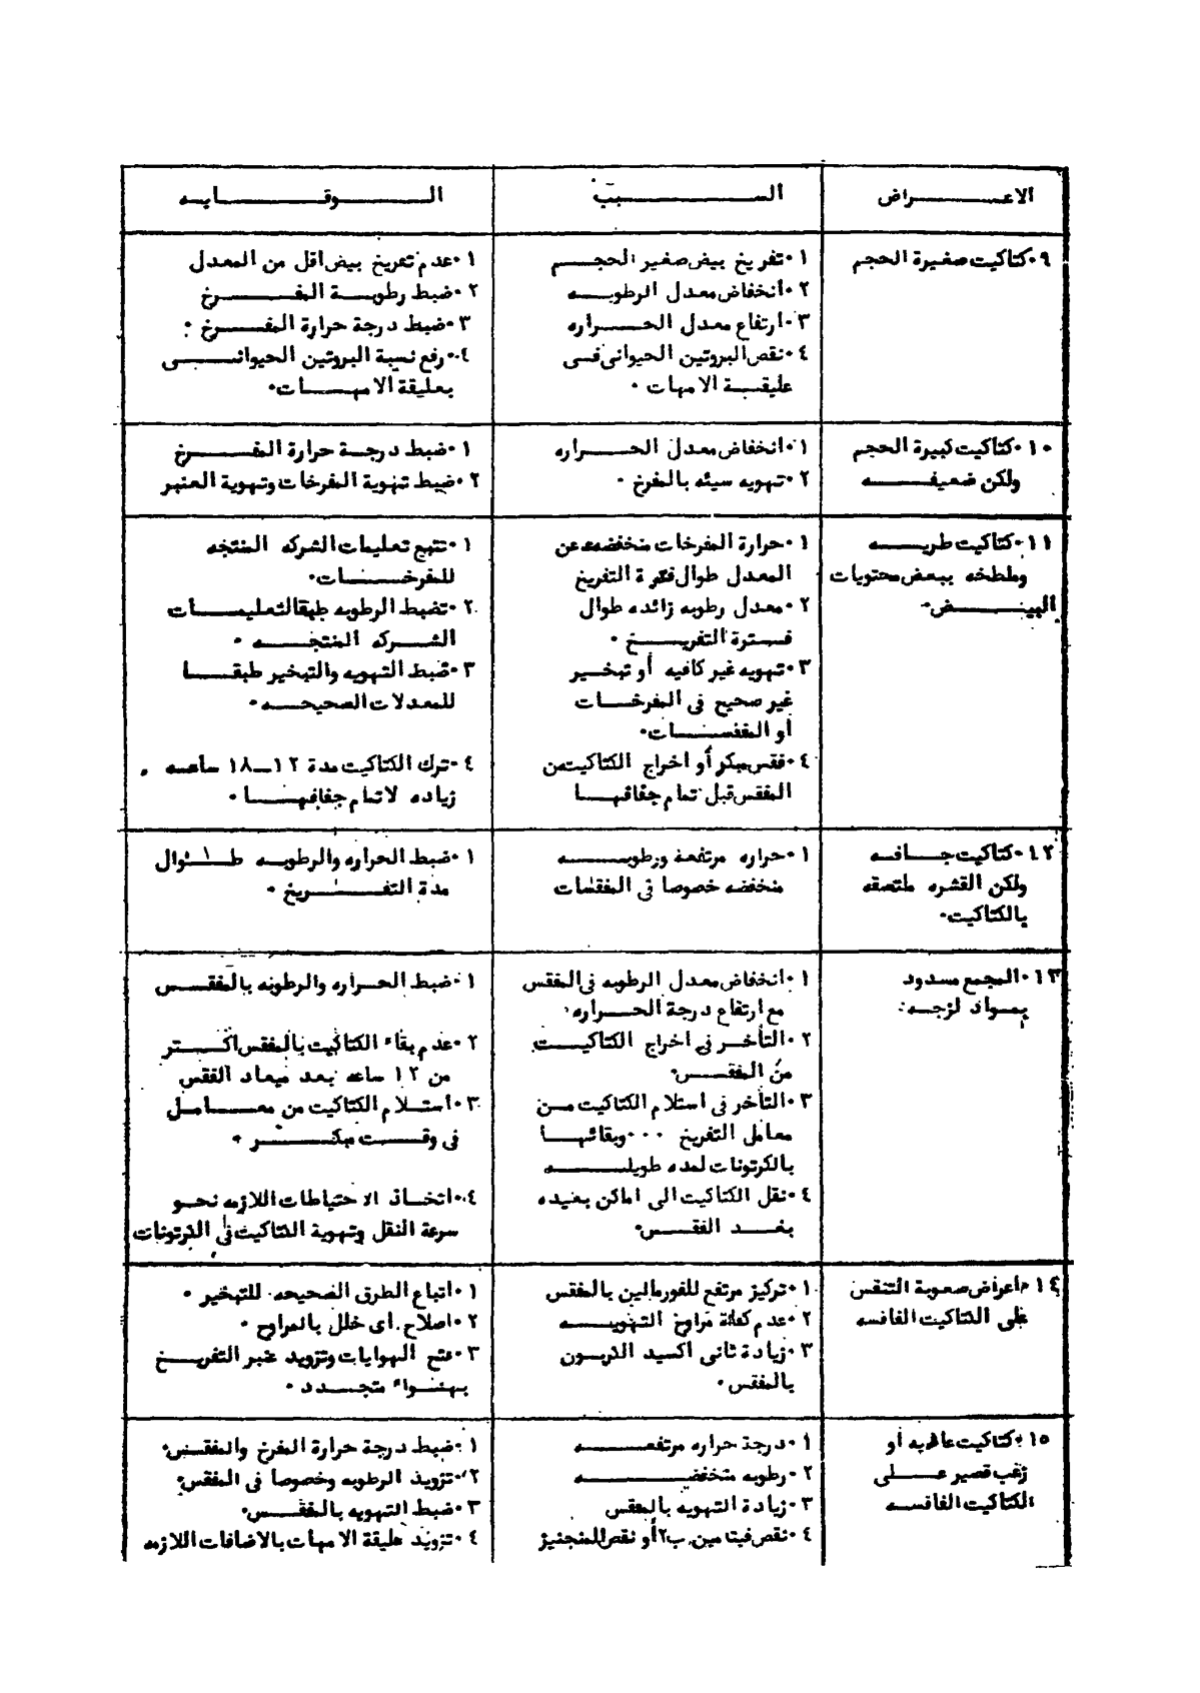 الاعـــراض
الســـبب
الـــوقـــايه
٩٠كتاكيت صغيرة الحجم
١٠تفريخ بيض صغير الحجـــم
٢٠انخفاض معدل الرطوبـــه
٣٠ارتفاع معدل الحـــراره
٤٠نقص البروتين الحيوانى فـى
عليقـــة الامهات ٠
١٠عدم تفريخ بيض اقل من المعدل
٢٠ضبط رطوبـــة المفـــرخ
٣٠ضبط درجة حرارة المفـــرخ
٤٠رفع نسبة البروتين الحيوانـــى
بعليقة الامهـــات٠
١٠٠كتاكيت كبيرة الحجم
ولكن ضعيفـــه
١٠انخفاض معدل الحـــراره
٢٠تهويه سيئه بالمفرخ ٠
١٠ضبط درجـــة حرارة المفـــرخ
٢٠ضبط تهوية المفرخات وتهوية العنبر
١١٠كتاكيت طريـــه
وملطخه ببعض محتويات
البيـــض٠
١٠حرارة المفرخات منخفضه عن
المعدل طوال فترة التفريخ
٢٠معدل رطوبه زائده طوال
فـــترة التفريـــخ ٠
٣٠تهويه غير كافيه أو تبخـــير
غير صحيح فى المفرخـــات
أو المفقســـات٠
٤٠فقس مبكر أو اخراج الكتاكيت من
المفقس قبل تمام جفافهـــا
١٠تتبع تعليمات الشركه المنتجه
للمفرخـــات٠
٢٠تضبط الرطوبه طبقا لتعليمـــات
الشـــركه المنتجـــه ٠
٣٠ضبط التهويه والتبخير طبقـــا
للمعدلات الصحيحـــه ٠
٤٠ترك الكتاكيت مدة ١٢ــ١٨ ساعـــه
زياده لاتمام جفافهـــا ٠
١٢٠كتاكيت جـــافـــه
ولكن القشره ملتصقه
بالكتاكيت٠
١٠حراره مرتفعة ورطوبـــه
منخفضه خصوصا فى المفقسات
١٠ضبط الحراره والرطوبـــه طـــوال
مدة التفـــريخ ٠
١٣٠المجمع مسدود
بمـــواد لزجـــه٠
١٠انخفاض معدل الرطوبه فى المفقس
مع ارتفاع درجة الحـــراره٠
٢٠التأخـــر فى اخراج الكتاكيـــت
من المفقـــس٠
٣٠التأخر فى استلام الكتاكيت مـــن
معامل التفريخ ٠٠٠وبقائهـــا
بالكرتونات لمده طويلـــه
٤٠نقل الكتاكيت الى اماكن بعيده
بعـــد الفقـــس٠
١٠ضبط الحـــراره والرطوبه بالمفقـــس
٢٠عدم بقاء الكتاكيت بالمفقس اكـــثر
من ١٢ ساعه بعـــد ميعاد الفقس
٣٠استـــلام الكتاكيت من معـــامـــل
فى وقـــت مبكـــر ٠
٤٠اتخـــاذ الاحتياطات اللازمه نحـــو
سرعة النقل وتهوية الكتاكيت فى الكرتونات
١٤٠أعراض صعوبة التنفس
على الكتاكيت الفاقسه
١٠تركيز مرتفع للفورمالين بالمفقس
٢٠عدم كفاءة مراوح التهويـــه
٣٠زيادة ثانى اكسيد الكربون
بالمفقس ٠
١٠اتباع الطرق الصحيحه للتبخير ٠
٢٠اصلاح اى خلل بالمراوح ٠
٣٠فتح الهوايات وتزويد عنبر التفريـــخ
بهـــواء متجـــدد ٠
١٥٠كتاكيت عاريه أو
زغب قصير عـــلى
الكتاكيت الفاقسه
١٠درجة حراره مرتفعـــه
٢٠رطوبه منخفضـــه
٣٠زيادة التهويه بالمفقس
٤٠نقص فيتامين ب٢ أو نقص المنجنيز
١٠ضبط درجة حرارة المفرخ والمفقـــس٠
٢٠تزويد الرطوبه وخصوصا فى المفقس٠
٣٠ضبط التهويه بالمفقـــس٠
٤٠تزويد عليقة الامهات بالاضافات اللازمه